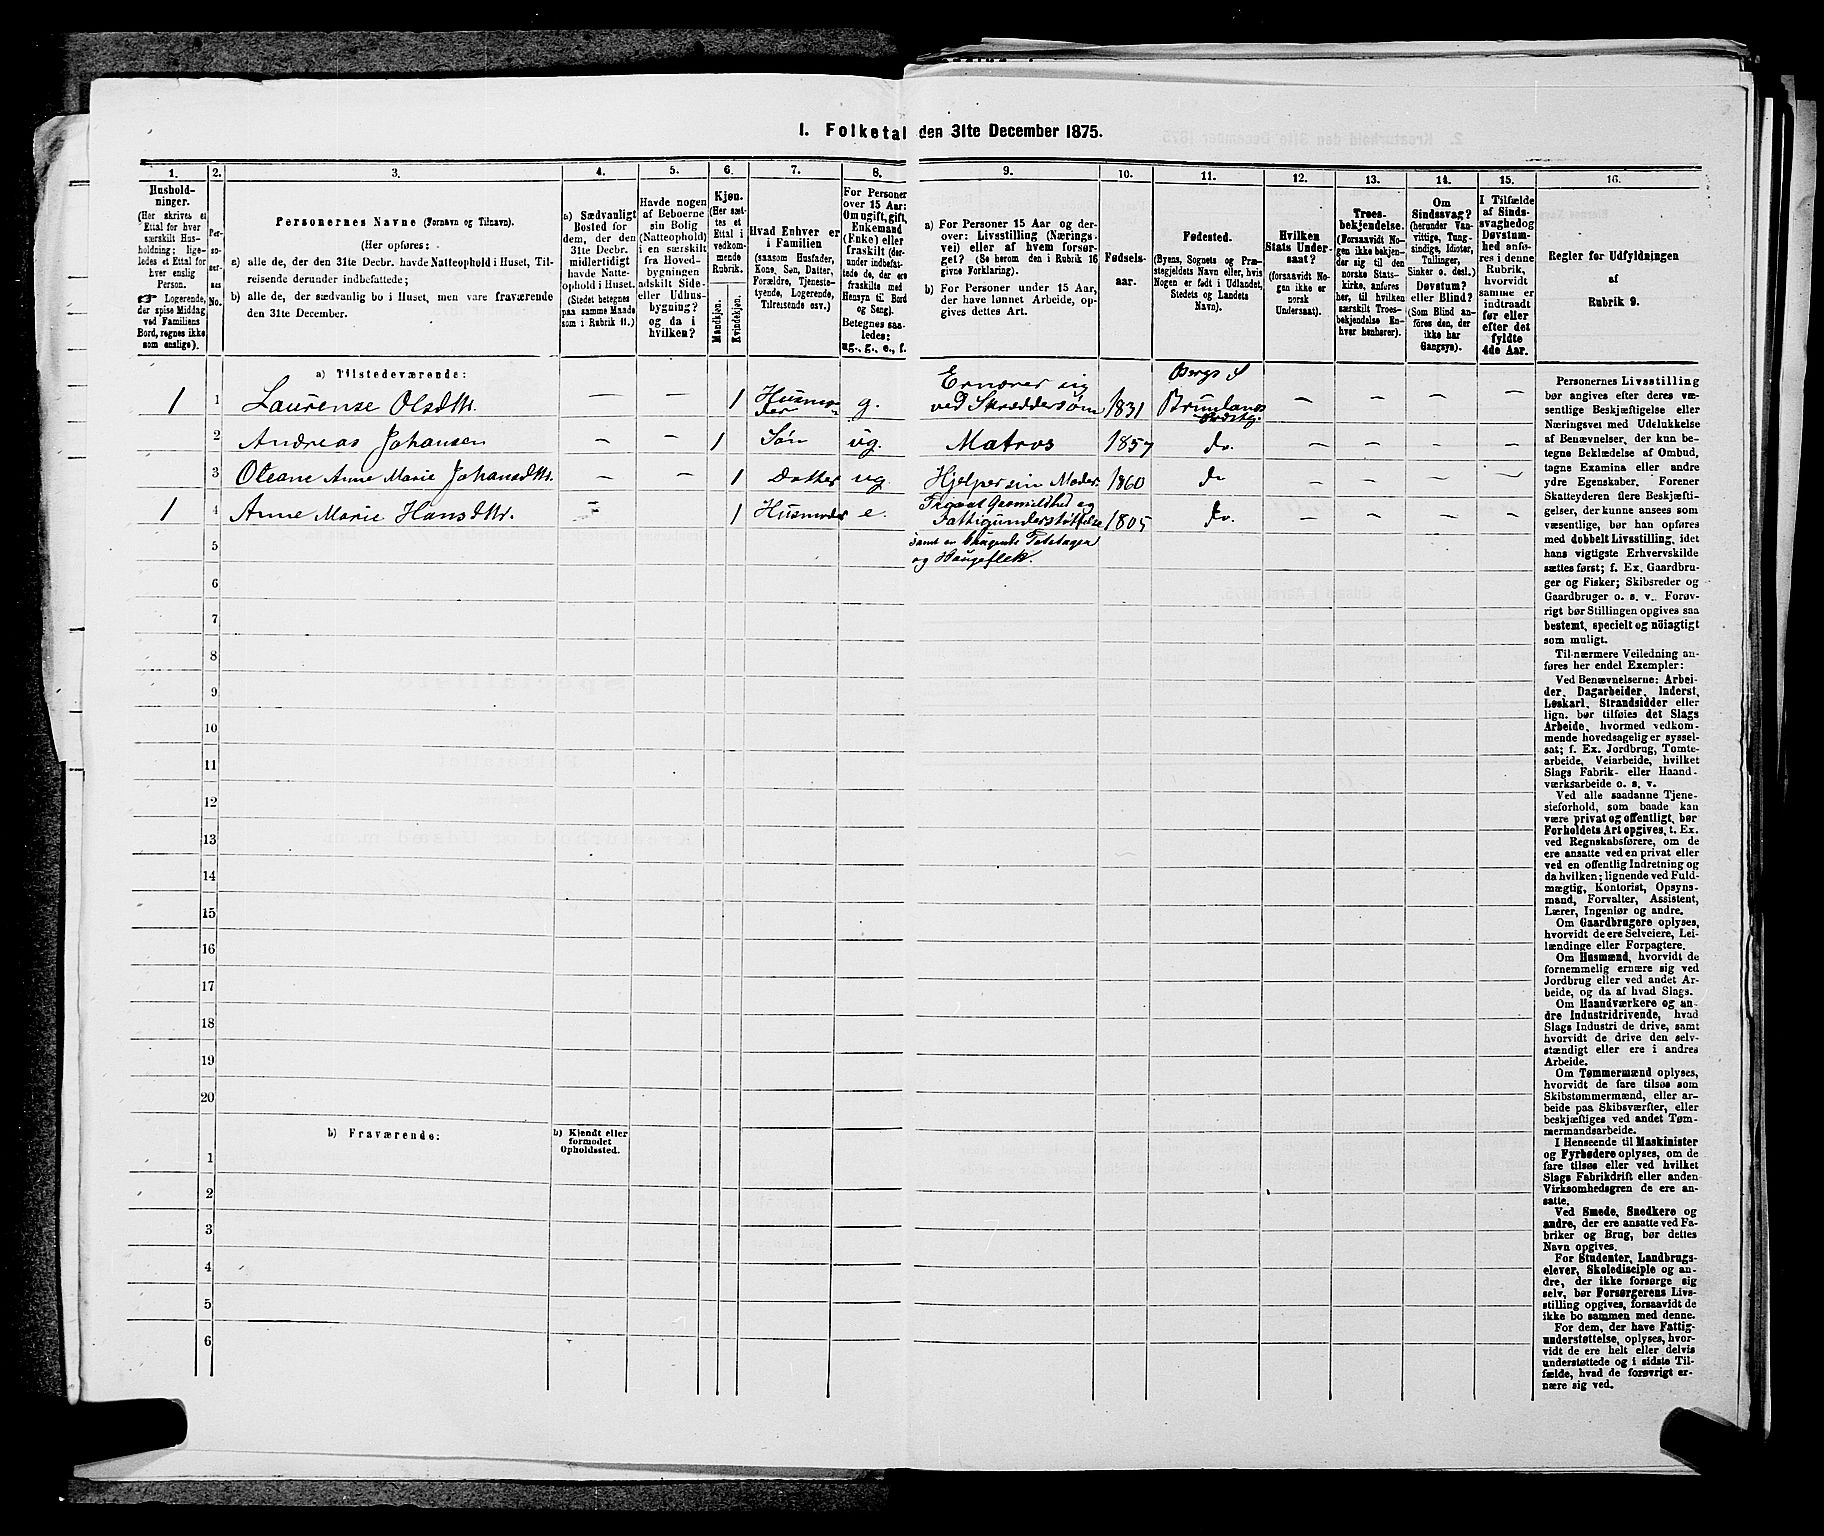 1. Folketal den 31te December 1875.
1.
2.
3.
4.
5.
6.
7.
8.
9.
10.
11.
12.
13.
14.
15.
16.
Hushold-
ninger.
(Her skrives et
Ettal for hver
særskilt Hus-
holdning; lige-
ledes et Ettal for
hver enslig
Person.
☞ Logerende,
der spise Middag
ved Familiens
Bord, regnes ikke
som enslige).
Per-
so-
ner-
nes
No.
Personernes Navne (Fornavn og Tilnavn).
(Her opføres:
a) alle de, der den 31te Decbr. havde Natteophold i Huset, Til-
reisende derunder indbefattede;
b) alle de, der sædvanlig bo i Huset, men vare fraværende
den 31te December.
a) Sædvanligt
Bosted for
dem, der den
31te Decbr.
midlertidigt
havde Natte-
ophold i Huset.
(Stedet betegnes
paa samme Maade
som i Rubrik 11.)
Havde nogen
af Beboerne
sin Bolig
(Natteophold)
i en særskilt
fra Hoved-
bygningen
adskilt Side-
eller Udhus-
bygning?
og da i
hvilken?
Kjøn.
(Her sæt-
tes et
Ettal i
vedkom-
mende
Rubrik.
Mandkjøn.
Kvindekjøn.
Hvad Enhver er
i Familien
(saasom Husfader,
Kone, Søn, Datter,
Forældre, Tjeneste-
tyende, Logerende,
Tilreisende osv.)
For Personer
over 15 Aar:
Om ugift, gift,
Enkemand
(Enke) eller
fraskilt (der-
under indbefat-
tede de, der ere
fraskilte med
Hensyn til Bord
og Seng).
Betegnes saa-
ledes:
ug., g., e., f.
a) For Personer 15 Aar og der-
over: Livsstilling (Nærings-
vei) eller af hvem forsør-
get? (Se herom den i Rubrik 16
givne Forklaring).
b) For Personer under 15 Aar,
der have lønnet Arbeide, op-
gives dettes Art.
Fødsels-
aar.
Fødested.
(Byens, Sognets og Præ-
stegjeldets Navn eller, hvis
Nogen er født i Udlandet,
Stedets og Landets
Navn).
Hvilken
Stats Under-
saat?
(forsaavidt No-
gen ikke er
norsk
Undersaat).
Troes-
bekjendelse.
(Forsaavidt No-
gen ikke bekjen-
der sig til den
norske Stats-
kirke, anføres
her, til hvilken
særskilt Troes-
bekjendelse En-
hver henhører).
Om
Sindssvag?
(herunder Van-
vittige, Tung-
sindige, Idioter,
Tullinger,
Sinker o. desl.)
Døvstum?
eller Blind?
(Som Blind an-
føres den, der
ikke har
Gangsyn).
I Tilfælde
af Sinds-
svaghed og
Døvstum-
hed anfø-
res i denne
Rubrik,
hvorvidt
samme er
indtraadt
før eller
efter det
fyldte
4de Aar.
Regler for Udfyldningen
af
Rubrik 9.
a) Tilstedeværende:
1 1 Laurense Olsdtr. — — 1 Husmo-
der g. Ernærer sig
ved Skræddersøm 1831 Bergs S
Brunlanes
Prstg. — — — —
2 Andreas Johansen — — 1 Søn ug. Matros 1857 do. — — — —
3 Oleane Anne Marie Johansdtr. — — 1 Datter ug. Hjelper sin Moder. 1860 do — — — —
1 4 Anne Marie Hansdtr. — — 1 Husmoder e. Privat Godmildhed og
Fattigunderstøttelse 1805 do. — — — —
5 samt en
og Haugeflek.
6
7
8
9
10
11
12
13
14
15
16
17
18
19
20
b) Fraværende:
b) Kjendt eller
formodet
Opholdssted.
1
2
3
4
5
6
Personernes Livsstilling
bør angives efter deres væ-
sentlige Beskjæftigelse eller
Næringsvei med Udelukkelse
af Benævnelser, der kun be-
tegne Beklædelse af Ombud,
tagne Examina eller andre
ydre Egenskaber. Forener
Skatteyderen flere Beskjæfti-
gelser, der kunne ansees som
væsentlige, bør han opføres
med dobbelt Livsstilling, idet
hans vigtigste Erhvervskilde
sættes først; f. Ex. Gaardbru-
ger og Fisker; Skibsreder og
Gaardbruger o. s. v. Forøv-
rigt bør Stillingen opgives saa
bestemt, specielt og nöiagtigt
som muligt.
Til nærmere Veiledning an-
føres her endel Exempler:
Ved Benævnelserne: Arbei-
der, Dagarbeider, Inderst,
Løskarl, Strandsidder eller
lign. bør tilføies det Slags
Arbeide, hvormed vedkom-
mende hovedsagelig er syssel-
sat; f. Ex. Jordbrug, Tomte-
arbeide, Veiarbeide, hvilket
Slags Fabrik- eller Haand-
værksarbeide o. s. v.
Ved alle saadanne Tjene-
steforhold, som baade kan
være privat og offentligt, bør
Forholdets Art opgives, t. Ex.
ved Regnskabsførere, om de
ere ansatte ved en privat eller
ved en offentlig Indretning og
da hvilken; lignende ved Fuld-
mægtig, Kontorist, Opsyns-
mand, Forvalter, Assistent,
Lærer, Ingeniør og andre.
Om Gaardbrugere oplyses,
hvorvidt de ere Selveiere, Lei-
lændinge eller Forpagtere.
Om Husmænd, hvorvidt de
fornemmelig ernære sig ved
Jordbrug eller ved andet Ar-
beide, og da af hvad Slags.
Om Haandværkere og an-
dre Industridrivende, hvad
Slags Industri de drive, samt
hvorvidt de drive den selv-
stændigt eller ere i andres
Arbeide.
Om Tømmermænd oplyses,
hvorvidt de fare tilsøs som
Skibstømmermænd, eller ar-
beide paa Skibsværfter, eller
beskjæftiges ved andet Tøm-
mermandsarbeide.
I Henseende til Maskinister
og Fyrbødere oplyses, om de
fare tilsøs eller ved hvilket
Slags Fabrikdrift eller anden
Virksomhedsgren de ere an-
satte.
Ved Smede, Snedkere og
andre, der ere ansatte ved Fa-
briker og Brug, bør dettes
Navn opgives.
For Studenter, Landbrugs-
elever, Skoledisciple og an-
dre, der ikke forsørge sig
selv, bør Forsørgerens Livs-
stilling opgives, forsaavidt de
ikke bo sammen med denne.
For dem, der have Fattig-
understøttelse, oplyses, hvor-
vidt de ere helt eller delvis
understøttede og i sidste Til-
fælde, hvad de forøvrigt er-
nære sig ved.